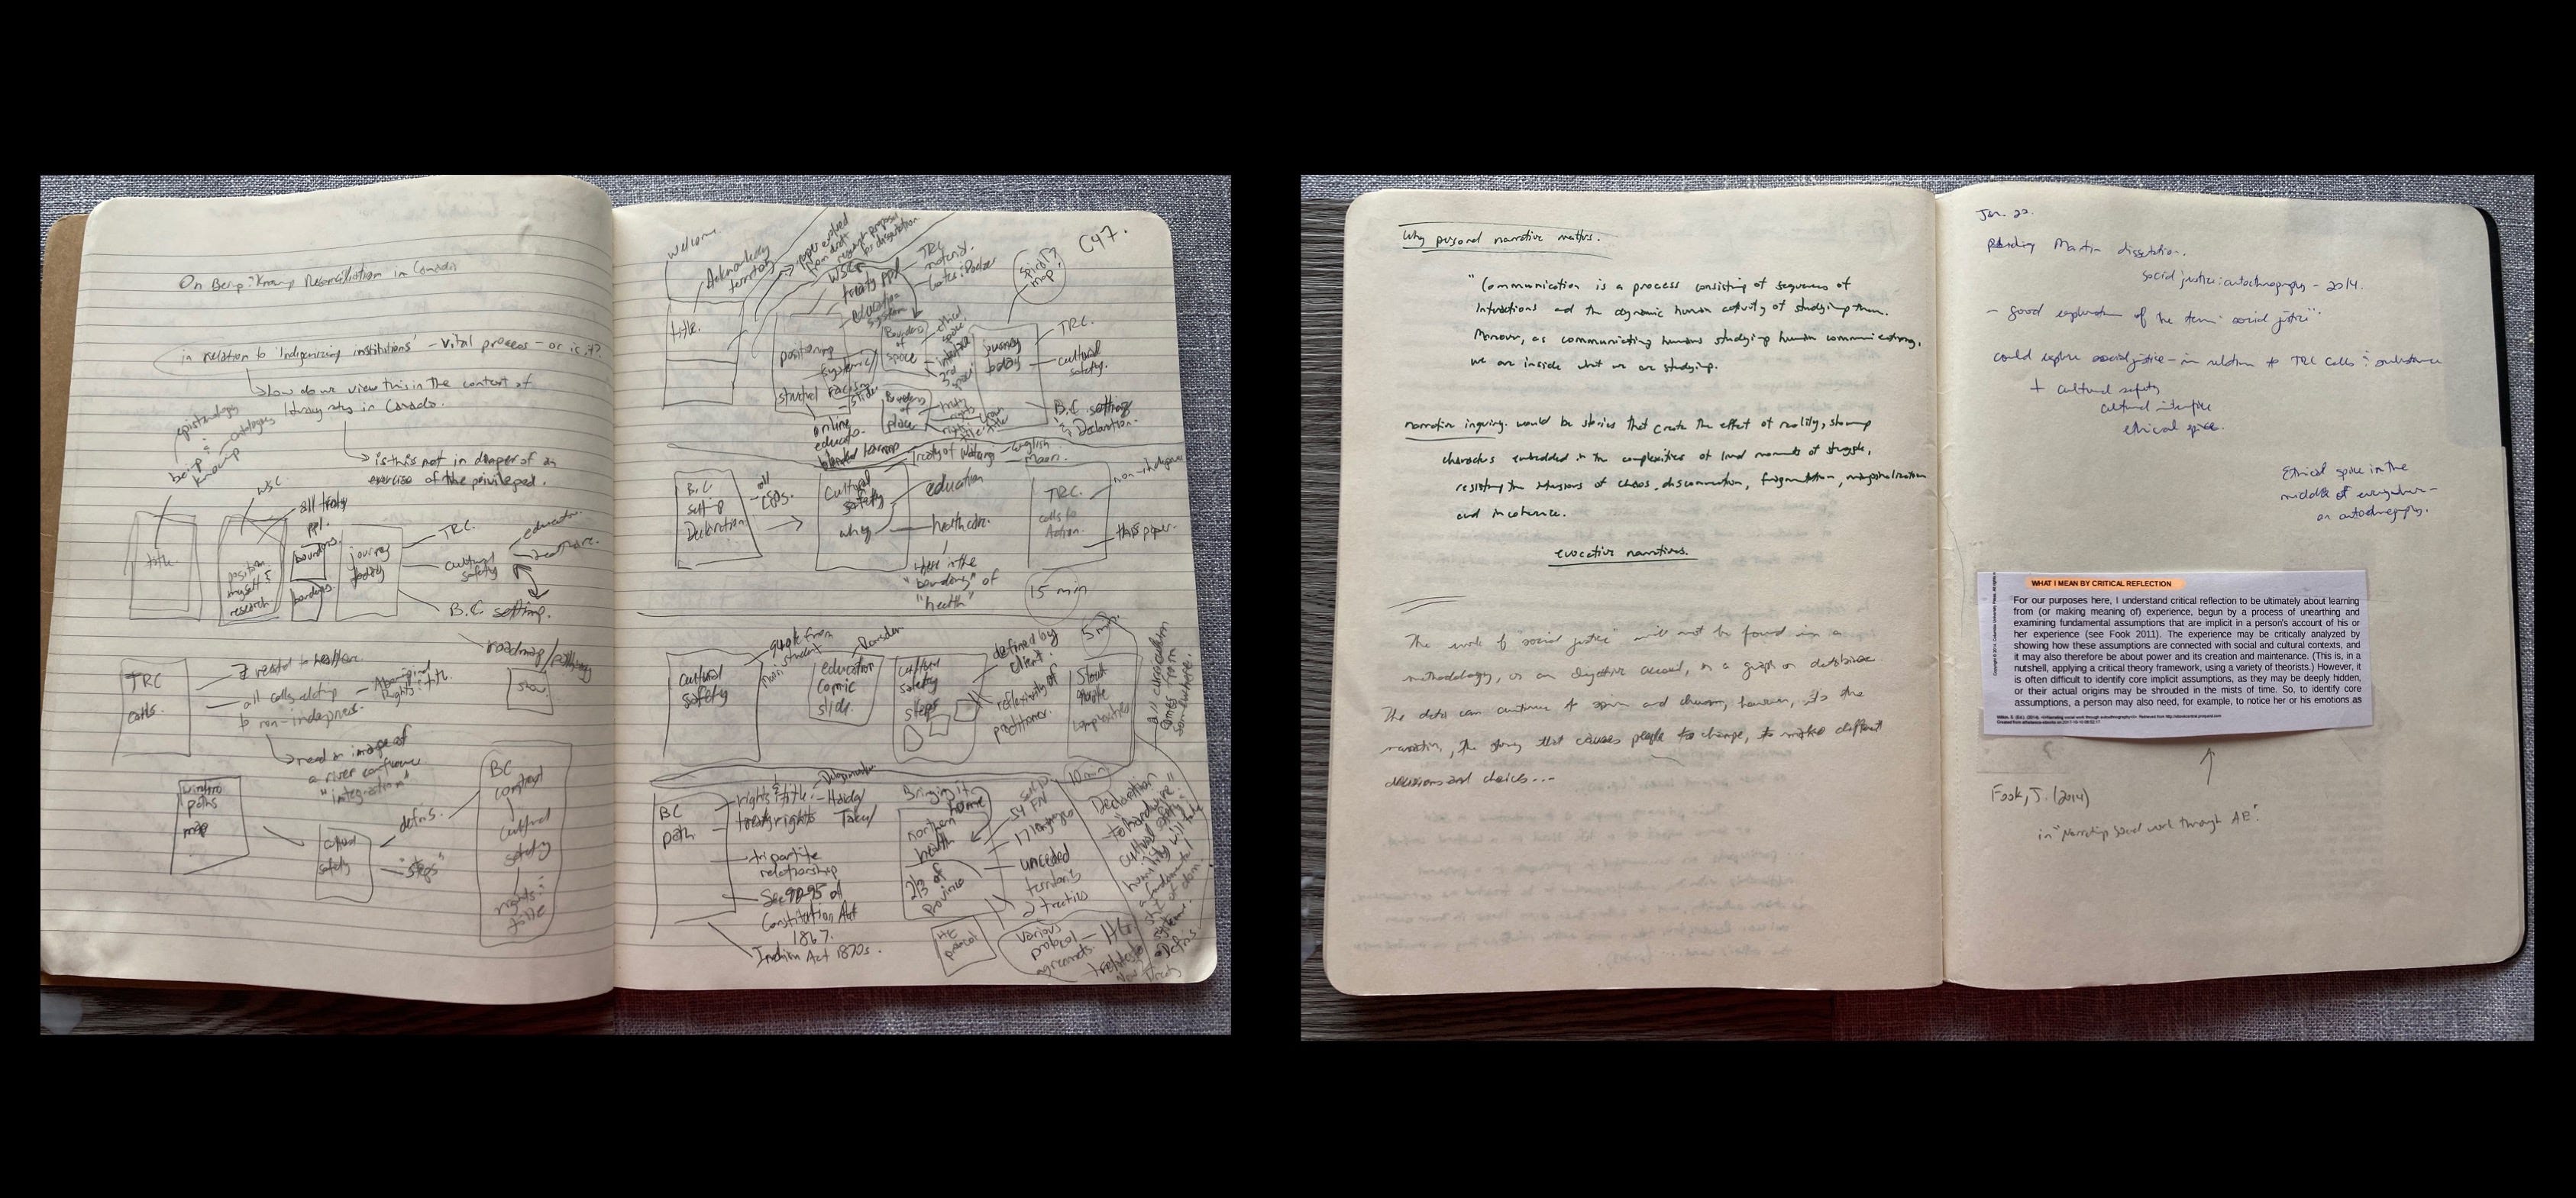 On Being & Knowing Reconciliation in Canada
in relation to 'Indigenizing institutions' - vital process - or is it?
how do we view this in the context of
in Canada.
epistemology
being &
knowing
is this not in danger of an
exercise of the privileged.
title
WSC
position
myself &
research
all treaty
ppl.
boundaries.
borders
journey
today
TRC.
cultural
safety
education.
healthcare.
B.C. setting.
roadmap/pathway
show.
TRC
calls.
7 related to healthcare
all calls relating
to non-indigenous
Aboriginal
Rights & title.
need an image of
a river confluence
"integration"
paths
map
cultural
safety
defns.
"steps"
BC
context
cultural
safety
rights &
title
welcome
Acknowledge
territory
title.
paper evolved
from draft
research proposal
for dissertation
WSC
treaty ppl
education
system
TRC
material.
C47.
spiral?
map?
positioning
systemic/
structural racism
slide
online
educator
blended learning
Borders
of
space
ethical
space
interface
3rd
space
Borders
of
place
journey
today
TRC.
cultural
safety.
B.C. setting
& Declaration.
B.C.
setting
Declaration.
all
CEOs.
Cultural
safety
why
Treaty of Waitangi - english
maori.
education
healthcare.
where is the
"boundary" of
"health"
TRC.
calls to
Action.
non-indigenous
this paper.
15 min
cultural
safety
quote from
maori student
education
comic
slide.
Ramsden
cultural
safety
steps
defined by
client.
reflexivity of
practitioner.
5 min
Stout
quote
complexities
all curriculum
comes from
somewhere.
BC
path
rights & title - Haida/
Delgamuukw
treaty rights Taku/
tripartite
relationship
Sec 90-95 of
Constitution Act
1867.
Indian Act 1870s.
Bringing it
home
northern
health
2/3 of
province
54 FN
17 languages
unceded
territories
2 treaties
various
protocol
agreements.
10 min
Declaration
to "hardwire"
cultural safety &
humility will take
a fundamental
shift
system.
Why personal narrative matters.
"Communication is a process consisting of sequences of
interactions and the dynamic human activity of studying them.
Moreover, as communicating humans studying human communicating,
we are inside what we are studying.
narrative inquiry. would be stories that create the effect of reality, showing
characters embedded in the complexities of lived moments of struggle,
resisting the intrusions of chaos, disconnection, fragmentation, marginalization
and incoherence.
evocative narratives.
The work of "social justice" will not be found in a
methodology, or an objective account, in a graph or database
The data can continue to spin and churn, however, it's the
narrative, the story that causes people to change, to make different
decisions and choices...
Jan. 22.
Reading Martin dissertation.
social justice: autoethnography - 2014.
- good explanation of the term "social justice".
could explore social justice - in relation to TRC Calls & substance
+ cultural safety
cultural interface
ethical space.
Ethical space in the
middle of everywhere -
an autoethnography.
WHAT I MEAN BY CRITICAL REFLECTION
For our purposes here, I understand critical reflection to be ultimately about learning
from (or making meaning of) experience, begun by a process of unearthing and
examining fundamental assumptions that are implicit in a person's account of his or
her experience (see Fook 2011). The experience may be critically analyzed by
showing how these assumptions are connected with social and cultural contexts, and
it may also therefore be about power and its creation and maintenance. (This is, in a
nutshell, applying a critical theory framework, using a variety of theorists.) However, it
is often difficult to identify core implicit assumptions, as they may be deeply hidden,
or their actual origins may be shrouded in the mists of time. So, to identify core
assumptions, a person may also need, for example, to notice her or his emotions as
Fook, J. (2014)
in "Narrating social work through AE".